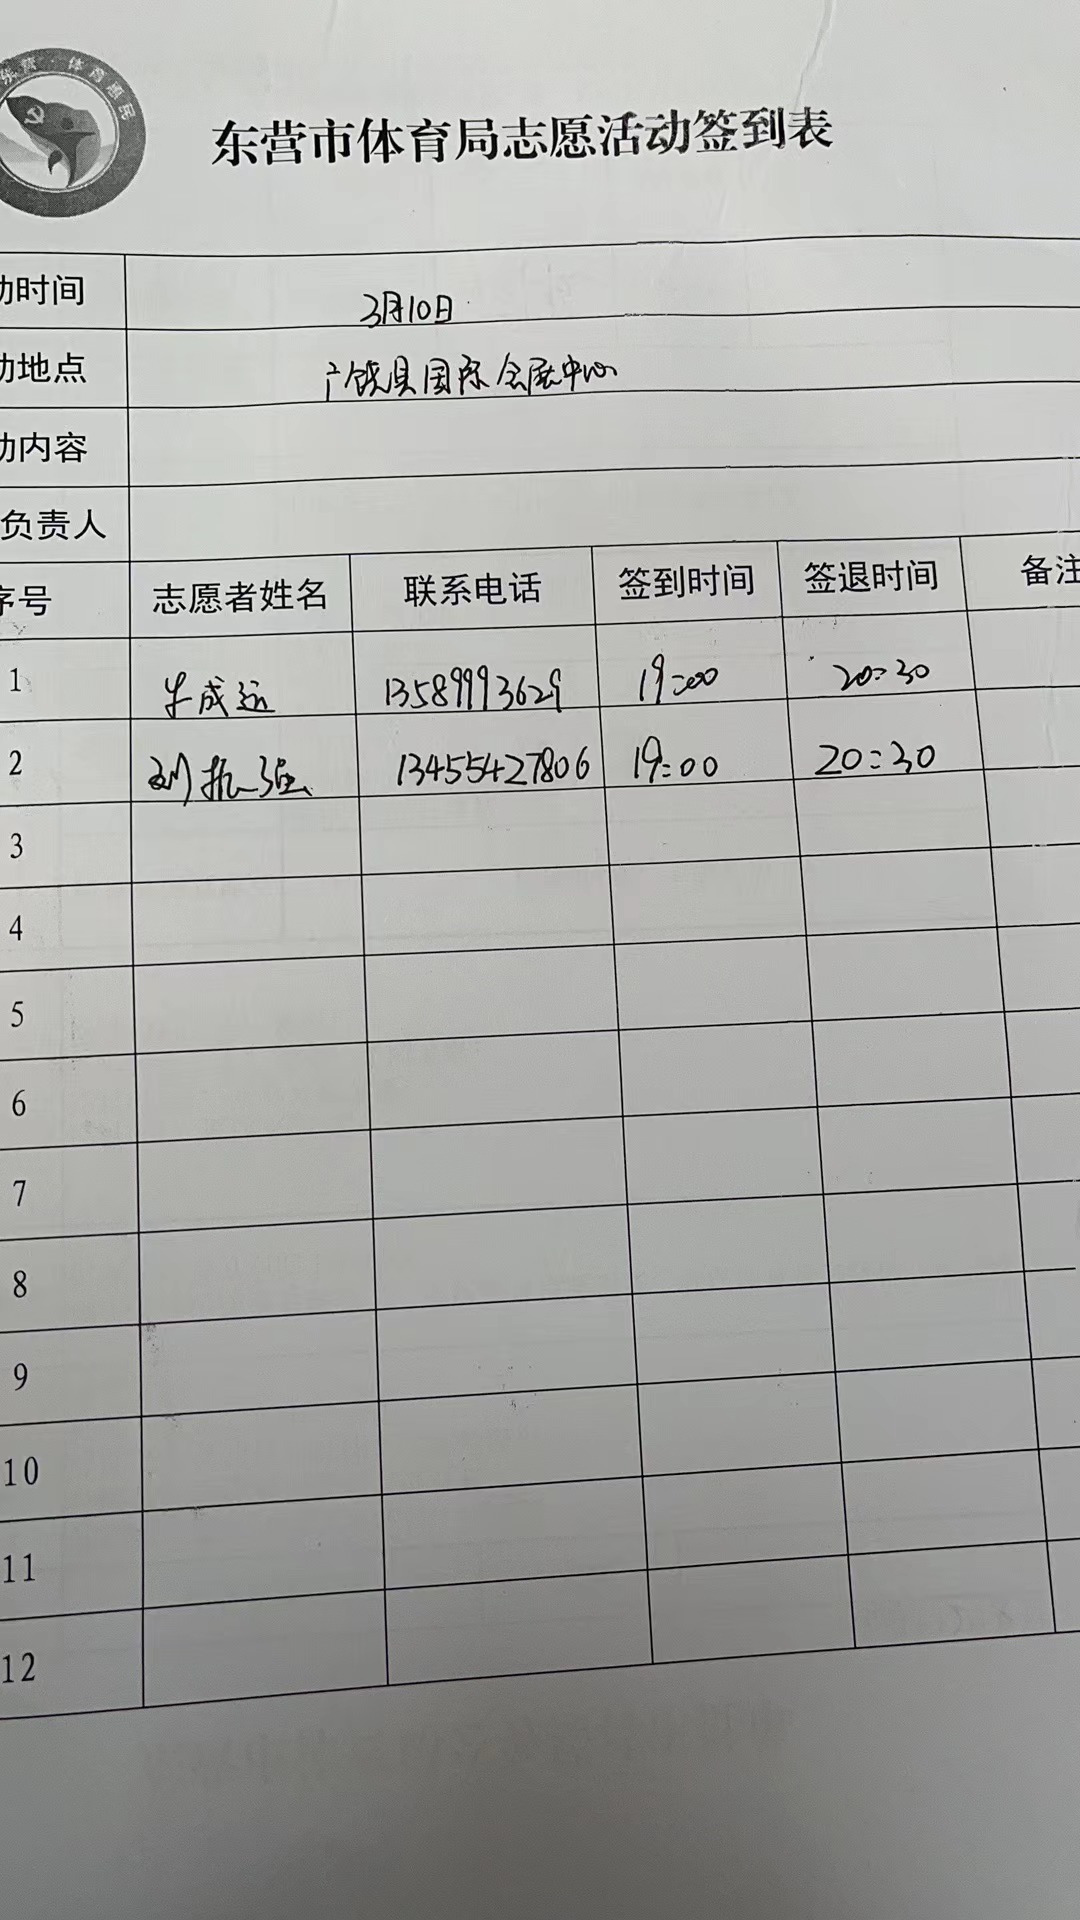 东营·体育惠民
东营市体育局志愿活动签到表
动时间 3月10日
动地点 广饶县国际会展中心
动内容
负责人
序号 志愿者姓名 联系电话 签到时间 签退时间 备注
1 牛成远 13589993629 19:00 20:30
2 刘振强 13455427806 19:00 20:30
3
4
5
6
7
8
9
10
11
12